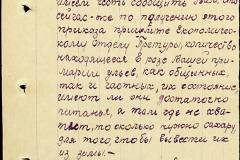 имеем честь сообщить Вам, что
сейчас-же по получению этого
приказа пришлите Экономичес-
кому отделу Претуры, количество
находящиеся в роде Вашей при-
марии ульев, как общинных,
так и частных, их состояние,
имеют ли они достаточно
питанья, а там где не хва-
тает, то сколько нужно сахару,
для того, чтобы вывести их
из зимы.-